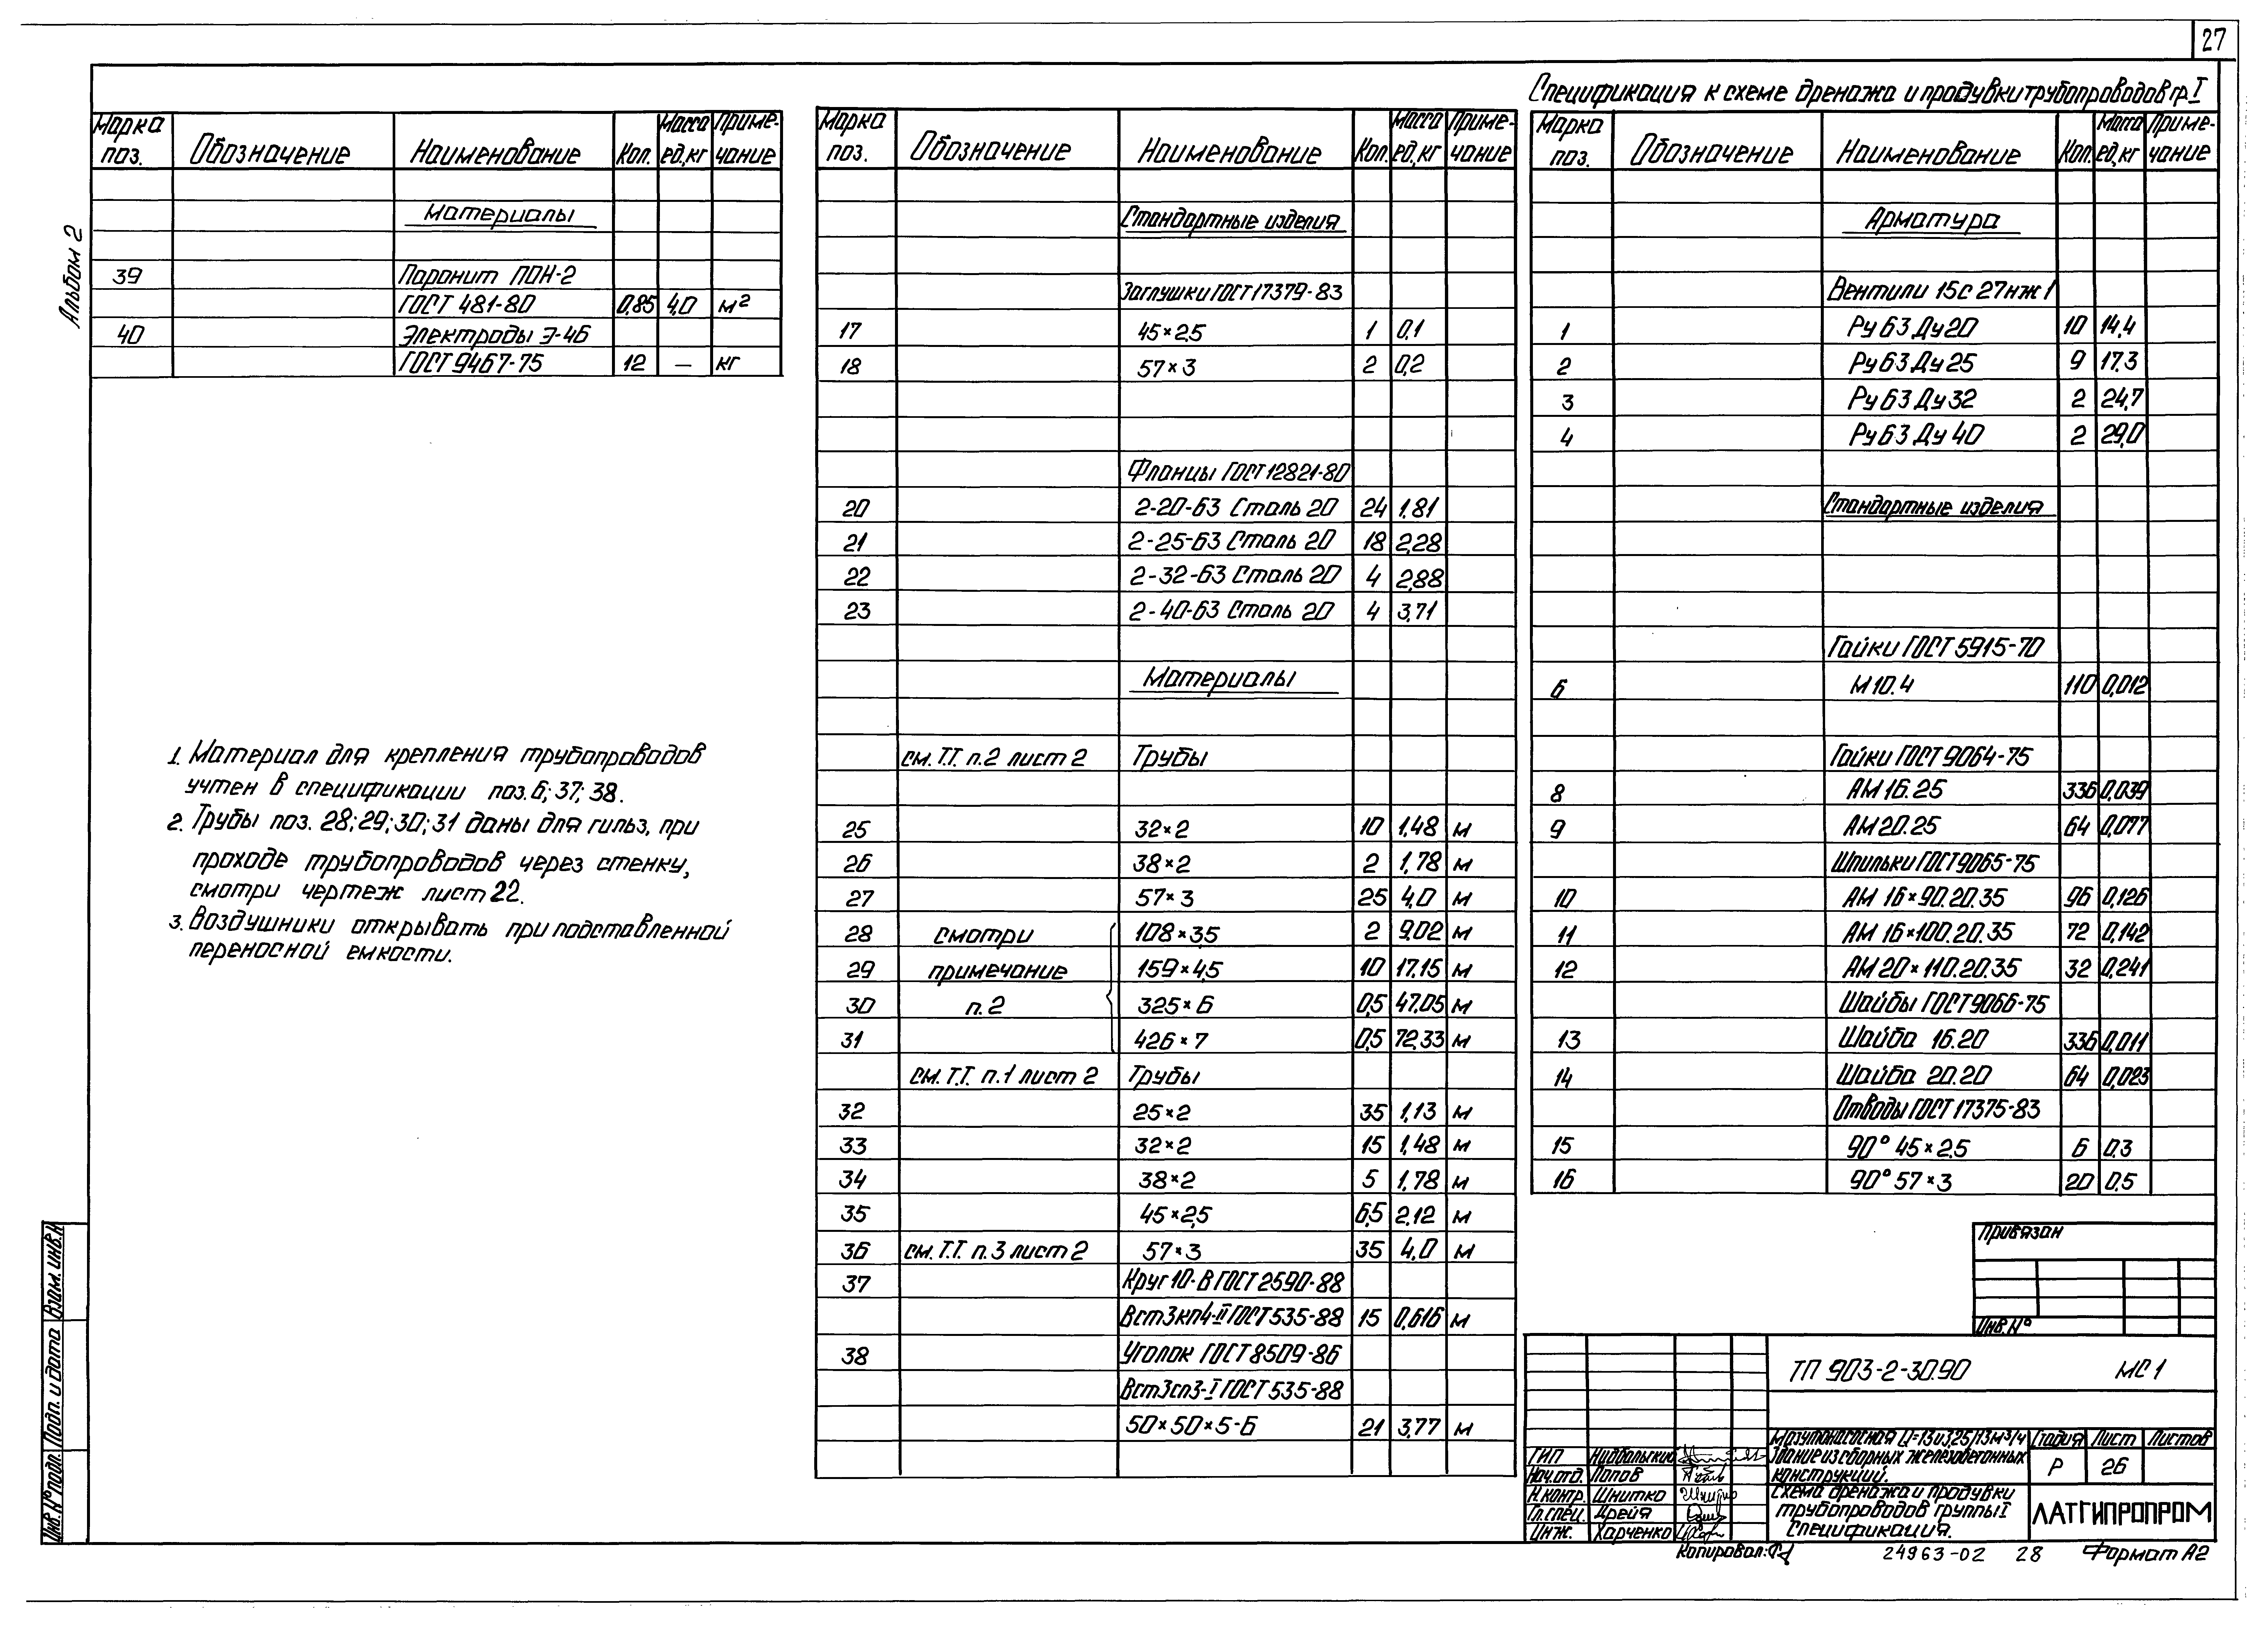 27
Альбом 2
Марка поз. Обозначение Наименование Кол. Масса ед, кг Примечание
Материалы
39 Паронит ПОН-2
ГОСТ 481-80 0,85 4,0 м²
40 Электроды Э-46
ГОСТ 9467-75 12 — кг
1. Материал для крепления трубопроводов
учтен в спецификации поз. 6; 37; 38.
2. Трубы поз. 28; 29; 30; 31 даны для гильз, при
проходе трубопроводов через стенку,
смотри чертеж лист 22.
3. Воздушники открывать при подставленной
переносной емкости.
Марка поз. Обозначение Наименование Кол. Масса ед, кг Примечание
Стандартные изделия
Заглушки ГОСТ 17379-83
17 45×2,5 1 0,1
18 57×3 2 0,2
Фланцы ГОСТ 12821-80
20 2-20-63 Сталь 20 24 1,81
21 2-25-63 Сталь 20 18 2,28
22 2-32-63 Сталь 20 4 2,88
23 2-40-63 Сталь 20 4 3,71
Материалы
см. Т.Т. п.2 лист 2 Трубы
25 32×2 10 1,48 м
26 38×2 2 1,78 м
27 57×3 25 4,0 м
28 смотри 108×3,5 2 9,02 м
29 примечание 159×4,5 10 17,15 м
30 п. 2 325×6 0,5 47,05 м
31 426×7 0,5 72,33 м
см. Т.Т. п.1 лист 2 Трубы
32 25×2 35 1,13 м
33 32×2 15 1,48 м
34 38×2 5 1,78 м
35 45×2,5 6,5 2,12 м
36 см. Т.Т. п.3 лист 2 57×3 35 4,0 м
37 Круг 10-В ГОСТ 2590-88
Вст3кп4-II ГОСТ 535-88 15 0,616 м
38 Уголок ГОСТ 8509-86
Вст3сп3-I ГОСТ 535-88
50×50×5-Б 21 3,77 м
Спецификация к схеме дренажа и продувки трубопроводов гр. I
Марка поз. Обозначение Наименование Кол. Масса ед, кг Примечание
Арматура
Вентили 15с 27нж 1
1 Ру 63 Ду 20 10 14,4
2 Ру 63 Ду 25 9 17,3
3 Ру 63 Ду 32 2 24,7
4 Ру 63 Ду 40 2 29,0
Стандартные изделия
Гайки ГОСТ 5915-70
6 М 10.4 110 0,012
Гайки ГОСТ 9064-75
8 АМ 16.25 336 0,039
9 АМ 20.25 64 0,077
Шпильки ГОСТ 9065-75
10 АМ 16×90.20.35 96 0,126
11 АМ 16×100.20.35 72 0,142
12 АМ 20×110.20.35 32 0,241
Шайбы ГОСТ 9066-75
13 Шайба 16.20 336 0,011
14 Шайба 20.20 64 0,023
Отводы ГОСТ 17375-83
15 90° 45×2,5 6 0,3
16 90° 57×3 20 0,5
Привязан
Инв. №
ТП 903-2-30.90 МС 1
Мазутонасосная Q=13 и 3,25/13 м³/ч
Здание из сборных железобетонных
конструкций.
Стадия Лист Листов
Р 26
Схема дренажа и продувки
трубопроводов группы I
Спецификация.
ЛАТГИПРОПРОМ
ГИП
Нач. отд. Попов
Н. контр. Шнитко
Гл. спец. Дрейя
Инж. Харченко
Копировал:
24963-02 28 Формат А2
Взам. инв. №
Подп. и дата
Инв. № подл.